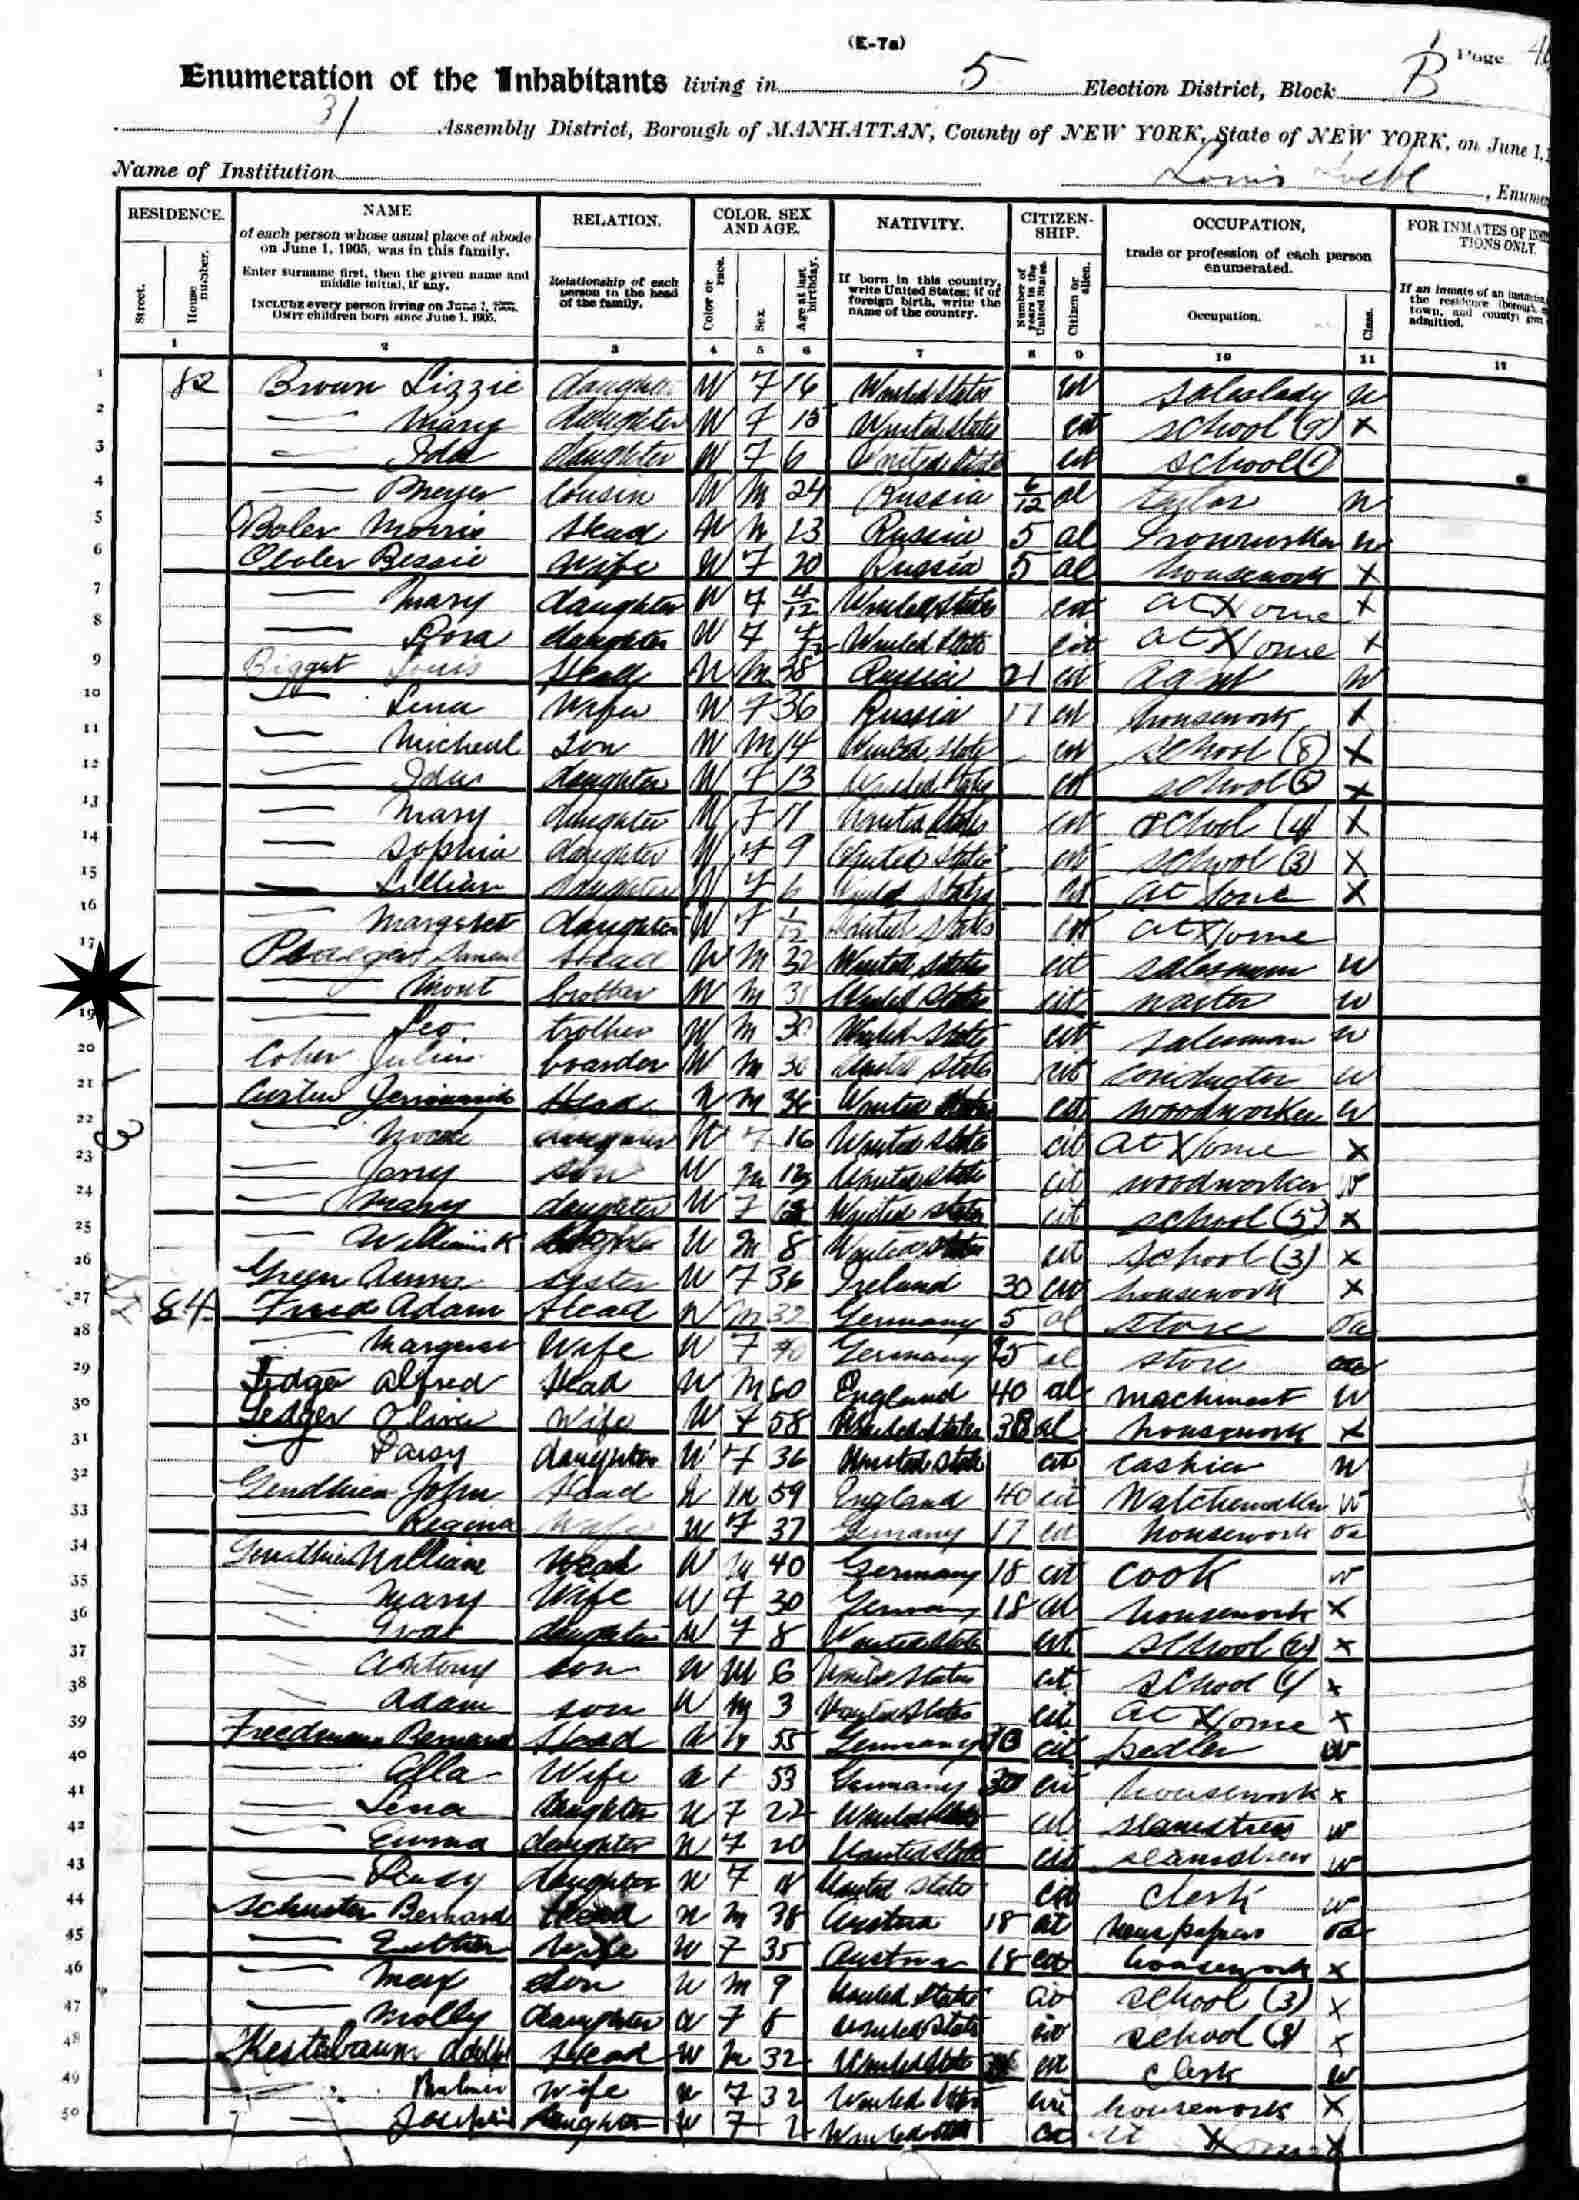 (E-7a)
Page 46
Enumeration of the Inhabitants living in 5 Election District, Block B
31 Assembly District, Borough of MANHATTAN, County of NEW YORK, State of NEW YORK, on June 1,
Name of Institution Louis , Enume
RESIDENCE. NAME RELATION. COLOR, SEX AND AGE. NATIVITY. CITIZENSHIP. OCCUPATION, FOR INMATES OF INSTITUTIONS ONLY.
Street. House number. of each person whose usual place of abode on June 1, 1905, was in this family. Enter surname first, then the given name and middle initial, if any. INCLUDE every person living on June 1, 1905. OMIT children born since June 1, 1905.
Relationship of each person to the head of the family. Color or race. Sex. Age at last birthday. If born in this country, write United States; if of foreign birth, write the name of the country. Number of years in the United States. Citizen or alien. trade or profession of each person enumerated. Occupation. Class. If an inmate of an institution, the residence (borough, town, and county) admitted.
1 2 3 4 5 6 7 8 9 10 11 12
1 82 Brown Lizzie daughter W F 16 United States cit saleslady W
2 — Mary daughter W F 15 United States cit school (9) X
3 — Ida daughter W F 6 United States cit school (1)
4 — Meyer cousin W M 24 Russia 6/12 al W
5 OBoler Morris Head W M 23 Russia 5 al Ironworker W
6 Oboler Bessie Wife W F 20 Russia 5 al housework X
7 — Mary daughter W F 4/12 United States cit at Home X
8 — Rosa daughter W F United States cit at Home X
9 Louis Head W M 38 Russia 21 cit agent W
10 — Lena Wife W F 36 Russia 17 cit housework X
11 — Micheal son W M 14 United States cit school (8) X
12 — Ida daughter W F 13 United States cit school (5) X
13 — Mary daughter W F 11 United States cit school (4) X
14 — Sophia daughter W F 9 United States cit school (3) X
15 — Lillian daughter W F 6 United States cit at Home X
16 — Margaret daughter W F 1/12 United States cit at Home
17 Head W M 32 United States cit salesman W
— Mont brother W M 31 United States cit W
19 — Leo brother W M 30 United States cit salesman W
20 Cohen Julius boarder W M 30 United States cit conductor W
21 Head W M 36 United States cit woodworker W
22 — daughter W F 16 United States cit at Home X
23 — Jerry son W M United States cit woodworker W
24 — Mary daughter W F United States cit school (5) X
25 — William K W M 8 United States cit school (3) X
26 Green Anna sister W F 36 Ireland 30 cit housework X
27 84 Adam Head W M 32 Germany 5 al store oa
28 — Margaret Wife W F 40 Germany al store oa
29 Alfred Head W M 60 England 40 al machinist W
30 Olive Wife W F 58 United States 38 al housework X
31 — Daisy daughter W F 36 United States cit cashier W
32 John Head W M 59 England 40 cit Watchmaker W
33 — Regina Wife W F 37 Germany 17 cit housework oa
34 William Head W M 40 Germany 18 cit cook W
35 — Mary Wife W F 30 Germany 18 cit housework X
36 — daughter W F 8 United States cit school X
37 — Antony son W M 6 United States cit school (1) X
38 — Adam son W M 3 United States cit at Home X
39 Freedman Bernard Head W M 55 Germany cit pedler W
40 — Wife W F 53 Germany 30 cit housework X
41 — Lena daughter W F 22 United States cit seamstress W
42 — Emma daughter W F 20 United States cit seamstress W
43 — daughter W F United States cit clerk W
44 Schuster Bernard Head W M 38 Austria 18 cit newspapers oa
45 — Esther Wife W F 35 Austria 18 cit housework X
46 — Max son W M 9 United States cit school (3) X
47 — Molly daughter W F 8 United States cit school X
48 Kestebaum Adolph Head W M 32 United States cit clerk W
49 — Wife W F 32 United States cit housework X
50 — daughter W F 2 United States cit at Home X